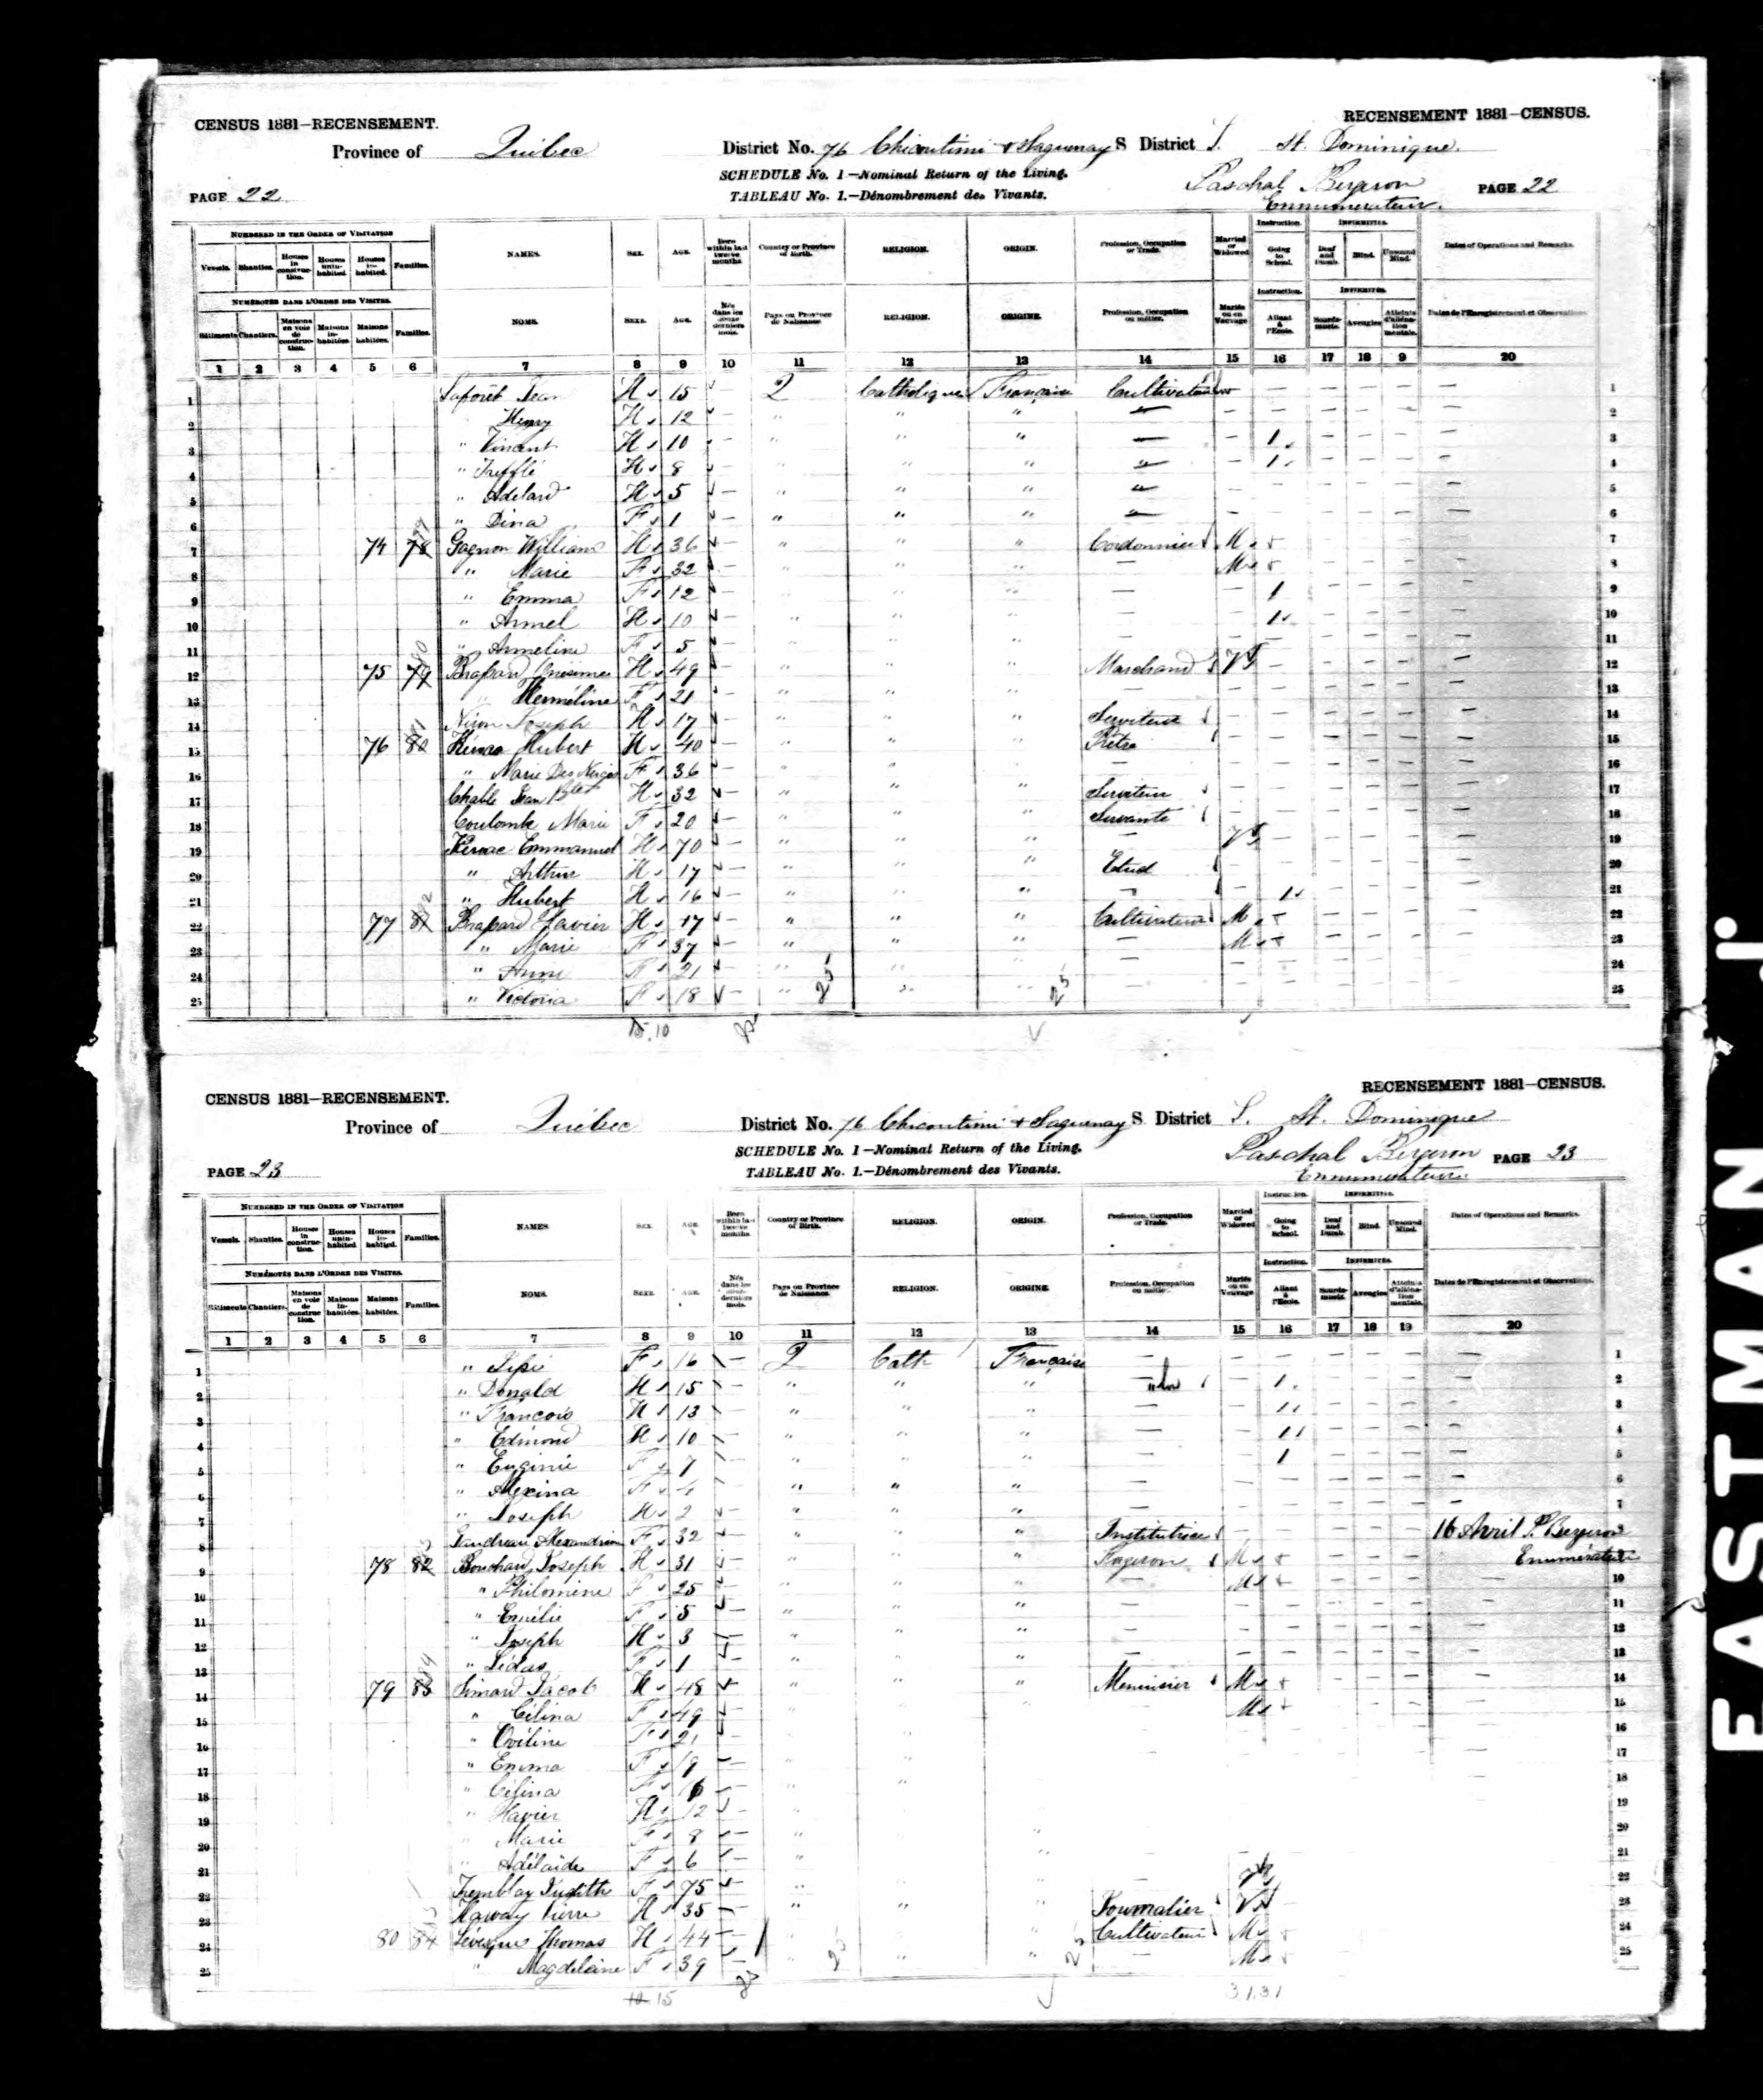 CENSUS 1881—RECENSEMENT. RECENSEMENT 1881—CENSUS.
Province of Québec District No. 76 Chicoutimi & Saguenay S District J. St. Dominique.
SCHEDULE No. 1—Nominal Return of the Living.
Paschal Bergeron
PAGE 22 TABLEAU No. 1.—Dénombrement des Vivants. PAGE 22
Ennumerateur.
NUMBERED IN THE ORDER OF VISITATION Instruction. INFIRMITIES.
Vessels. Shanties. Houses in construction. Houses uninhabited. Houses inhabited. Families. NAMES. SEX. AGE. Born within last twelve months. Country or Province of Birth. RELIGION. ORIGIN. Profession, Occupation or Trade. Married or Widowed Going to School. Deaf and Dumb. Blind. Unsound Mind. Dates of Operations and Remarks.
NUMÉROTÉS DANS L'ORDRE DES VISITES. Instruction. INFIRMITÉS.
Bâtiments Chantiers. Maisons en voie de construction. Maisons inhabitées. Maisons habitées. Familles. NOMS. SEXE. AGE. Nés dans les douze derniers mois. Pays ou Province de Naissance. RELIGION. ORIGINE. Profession, Occupation ou métier. Mariés ou en Veuvage Allant à l'École. Sourds-muets. Aveugles Atteints d'aliénation mentale. Dates de l'Enregistrement et Observations
1 2 3 4 5 6 7 8 9 10 11 12 13 14 15 16 17 18 9 20
1 Jean H 15 — Q Catholique Française Cultivateur — 1
2 Henry H 12 — " " " — 2
3 " Vincent H 10 — " " " — 1 3
4 " Trefflé H 8 — " " " — 1 4
5 " Adelard H 5 — " " " — 5
6 " Dina F 1 — " " " — 6
7 74 78 Gagnon William H 36 — " " " Cordonnier M 7
8 " Marie F 32 — " " " — M 8
9 " Emma F 12 — " " " — 1 9
10 " Armel H 10 — " " " — 1 10
11 " Armeline F 5 — " " " — 11
12 75 79 Onésime H 49 — " " " Marchand V 12
13 " Herméline F 21 — " " " — 13
14 Joseph H 17 — " " " Serviteur 14
15 76 80 Hubert H 40 — " " " Prêtre 15
16 " Marie Des Neiges F 36 — " " " — 16
17 Jean Bte H 32 — " " " Serviteur 17
18 Coulombe Marie F 20 — " " " Servante 18
19 Emmanuel H 70 — " " " — V 19
20 " Arthur H 17 — " " " Etud 20
21 " Hubert H 16 — " " " — 1 21
22 77 81 H 17 — " " " Cultivateur M 22
23 " Marie F 37 — " " " — M 23
24 " F 21 — " " " — 24
25 " Victoria F 18 — " 25 " " 25 — 25
15. 10
CENSUS 1881—RECENSEMENT. RECENSEMENT 1881—CENSUS.
Province of Québec District No. 76 Chicoutimi & Saguenay S District J. St. Dominique
SCHEDULE No. 1—Nominal Return of the Living.
Paschal Bergeron
PAGE 23 TABLEAU No. 1.—Dénombrement des Vivants. PAGE 23
Ennumerateur
NUMBERED IN THE ORDER OF VISITATION Instruction. INFIRMITIES.
Vessels. Shanties. Houses in construction. Houses uninhabited Houses inhabited. Families. NAMES. SEX. AGE. Born within last twelve months. Country or Province of Birth. RELIGION. ORIGIN. Profession, Occupation or Trade. Married or Widowed Going to School. Deaf and Dumb. Blind. Unsound Mind. Dates of Operations and Remarks.
NUMÉROTÉS DANS L'ORDRE DES VISITES. Instruction. INFIRMITÉS.
Bâtiments Chantiers. Maisons en voie de construction. Maisons inhabitées. Maisons habitées. Familles. NOMS. SEXE. AGE. Nés dans les douze derniers mois. Pays ou Province de Naissance. RELIGION. ORIGINE. Profession, Occupation ou métier. Mariés ou en Veuvage Allant à l'École. Sourds-muets. Aveugles Atteints d'aliénation mentale. Dates de l'Enregistrement et Observations.
1 2 3 4 5 6 7 8 9 10 11 12 13 14 15 16 17 18 19 20
1 " F 16 — Q Cath Française — 1
2 " Donald H 15 — " " " 1 2
3 " François H 13 — " " " — 1 3
4 " Edmond H 10 — " " " — 1 4
5 " Euginie F 7 — " " " — 1 5
6 " Alexina F 4 — " " " — 6
7 " Joseph H 2 — " " " — 7
8 Gaudreau Alexandrine F 32 — " " " Institutrice 16 Avril P. Bergeron 8
9 78 82 Bouchard Joseph H 31 — " " " M Enumérateur
10 " Philomène F 25 — " " " — M 10
11 " Emélie F 5 — " " " — 11
12 " Joseph H 3 — " " " — 12
13 " F 1 — " " " — 13
14 79 83 Simard Jacob H 48 — " " " Menuisier M 14
15 " Célina F 49 — " M 15
16 " Oveline F 21 — " " 16
17 " Emma F 19 — " " 17
18 " F 16 — " " 18
19 " H 12 — " 19
20 Marie F 8 — " " 20
21 Adélaide F 6 — " " 21
22 Tremblay Judith F 75 — " " " 22
23 Pierre H 35 — " " " Journalier V 23
24 80 84 Lévesque Thomas H 44 — " " Cultivateur M 24
25 " Magdeleine F 39 — " 25 " " 25 — M 25
12. 15
3.1.3.1
EASTMAN